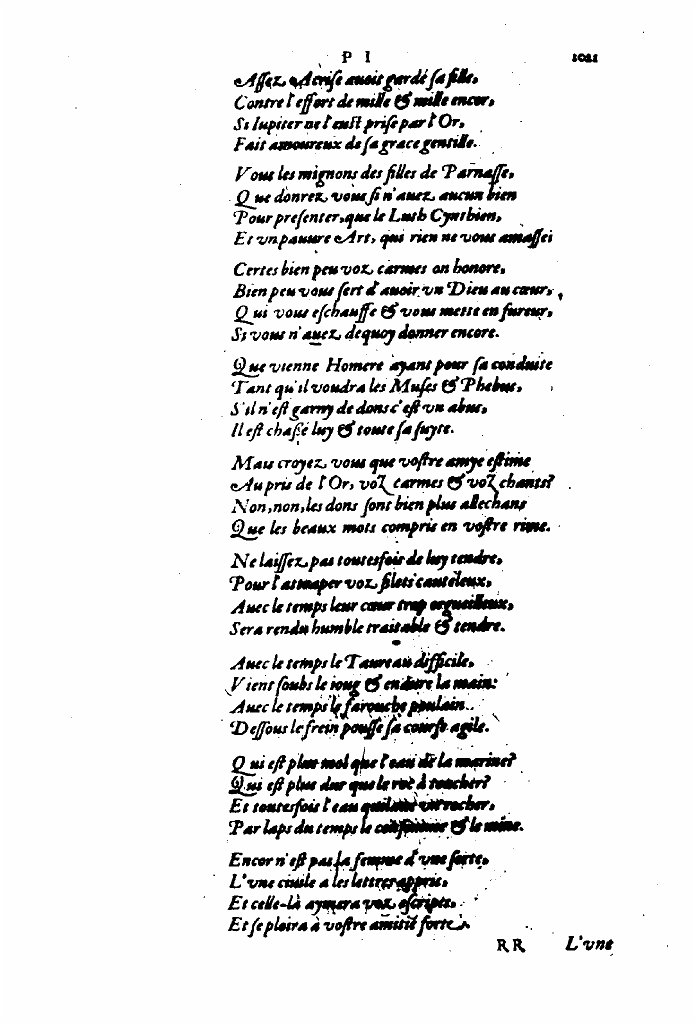 P I 1021
Assez Acrise auoit gardé sa fille,
Contre l'effort de mille & mille encor,
Si Iupiter ne l'eust prise par l'Or,
Fait amoureux de sa grace gentille.
Vous les mignons des filles de Parnasse,
Que donrez vous si n'auez aucun bien
Pour presenter, que le Luth Cynthien,
Et vn pauure Art, qui rien ne vous amasse?
Certes bien peu voz carmes on honore,
Bien peu vous sert d'auoir vn Dieu au cœur,
Qui vous eschauffe & vous mette en fureur,
Si vous n'auez dequoy donner encore.
Que vienne Homere ayant pour sa conduite
Tant qu'il voudra les Muses & Phebus,
S'il n'est garny de dons c'est vn abus,
Il est chassé luy & toute sa suyte.
Mais croyez vous que vostre amye estime
Au pris de l'Or, voz carmes & voz chants?
Non, non, les dons sont bien plus allechans
Que les beaux mots compris en vostre rime.
Ne laissez pas toutesfois de luy tendre,
Pour l'attraper voz filets cauteleux,
Auec le temps leur cœur trop orgueilleux,
Sera rendu humble traitable & tendre.
Auec le temps le Taureau difficile,
Vient soubs le ioug & endure la main:
Auec le temps le farouche poulain
Dessous le frein pousse sa course agile.
Qui est plus mol que l'eau de la marine?
Qui est plus dur que le roc à toucher?
Et toutesfois l'eau rocher,
Par laps du temps le & le mine.
Encor n'est pas la femme d'vne sorte,
L'vne ciuile a les lettres appris,
Et celle-là aymera voz escripts,
Et se plaira à vostre amitié forte.
RR L'vne